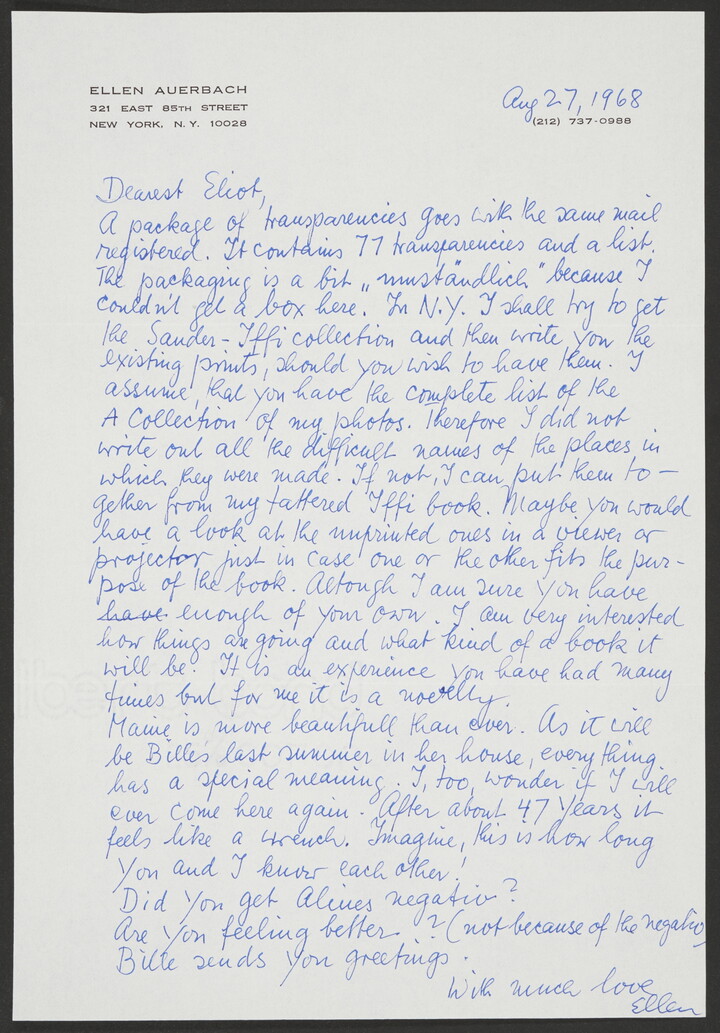 ELLEN AUERBACH
321 EAST 85TH STREET
NEW YORK, N. Y. 10028
Aug 27, 1968
(212) 737-0988
Dearest Eliot,
A package of transparencies goes with the same mail
registered. It contains 77 transparencies and a list.
The packaging is a bit „umständlich" because I
couldn't get a box here. In N.Y. I shall try to get
the Sander-Iffi collection and then write you the
existing prints, should you wish to have them. I
assume, that you have the complete list of the
A Collection of my photos. Therefore I did not
write out all the difficult names of the places in
which they were made. If not, I can put them to-
gether from my tattered Iffi book. Maybe you would
have a look at the unprinted ones in a viewer or
projector just in case one or the other fits the pur-
pose of the book. Altough I am sure you have
have enough of your own. I am very interested
how things are going and what kind of a book it
will be. It is an experience you have had many
times but for me it is a novelty.
Maine is more beautifull than ever. As it will
be Bille's last summer in her house, everything
has a special meaning. I, too, wonder if I will
ever come here again. After about 47 years it
feels like a wrench. Imagine, this is how long
you and I know each other!
Did you get Alines negativ?
Are you feeling better? (not because of the negativ)
Bille sends you greetings.
With much love
Ellen